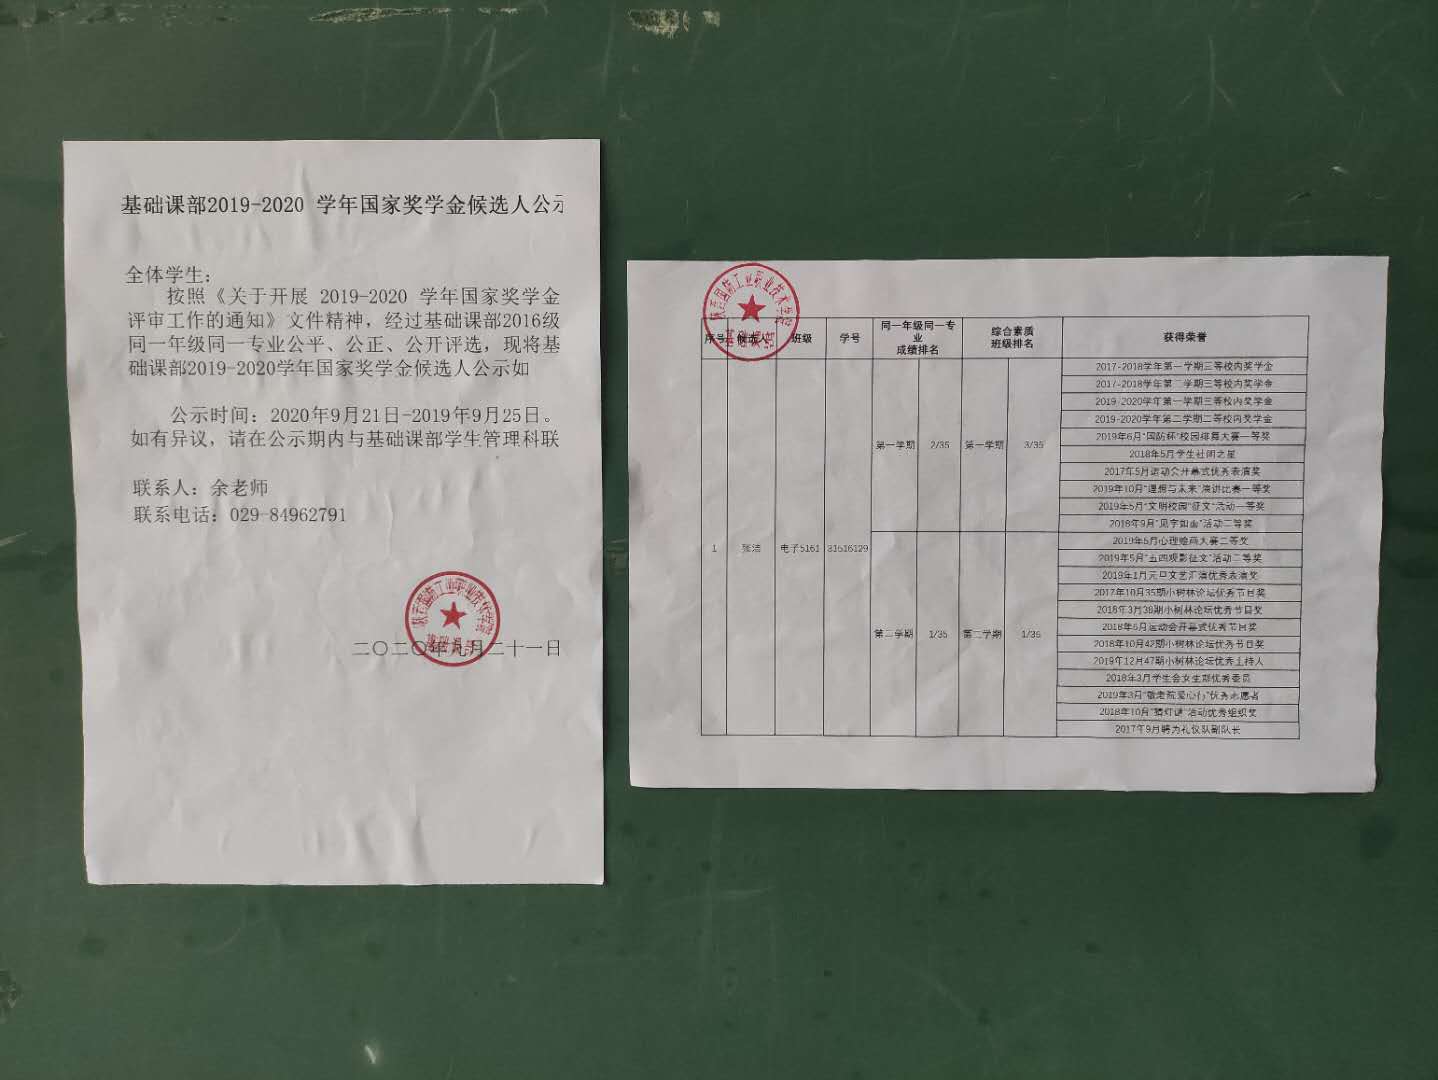 基础课部2019-2020 学年国家奖学金候选人公示
全体学生：
按照《关于开展 2019-2020 学年国家奖学金
评审工作的通知》文件精神，经过基础课部2016级
同一年级同一专业公平、公正、公开评选，现将基
础课部2019-2020学年国家奖学金候选人公示如
公示时间：2020年9月21日-2019年9月25日。
如有异议，请在公示期内与基础课部学生管理科联
联系人：余老师
联系电话：029-84962791
陕西国防工业职业技术学院
基础课部
二〇二〇年九月二十一日
陕西国防工业职业技术学院
基础课部
序号 候选人 班级 学号 同一年级同一专业成绩排名 综合素质班级排名 获得荣誉
1 张洁 电子5161 31516129
第一学期 2/35 第一学期 3/35
第二学期 1/35 第二学期 1/35
2017-2018学年第一学期三等校内奖学金
2017-2018学年第二学期三等校内奖学金
2019-2020学年第一学期三等校内奖学金
2019-2020学年第二学期二等校内奖学金
2019年6月"国防杯"校园排舞大赛一等奖
2018年5月学生社团之星
2017年5月运动会开幕式优秀表演奖
2019年10月"理想与未来"演讲比赛一等奖
2019年5月"文明校园"征文"活动一等奖
2018年9月"见字如面"活动二等奖
2019年5月心理绘画大赛二等奖
2019年5月"五四观影征文"活动二等奖
2018年1月元旦文艺汇演优秀表演奖
2017年10月35期小树林论坛优秀节目奖
2018年3月38期小树林论坛优秀节目奖
2018年5月运动会开幕式优秀节目奖
2018年10月42期小树林论坛优秀节目奖
2019年12月47期小树林论坛优秀主持人
2018年3月学生会女生部优秀委员
2019年3月"敬老院爱心行"优秀志愿者
2018年10月"猜灯谜"活动优秀组织奖
2017年9月聘为礼仪队副队长